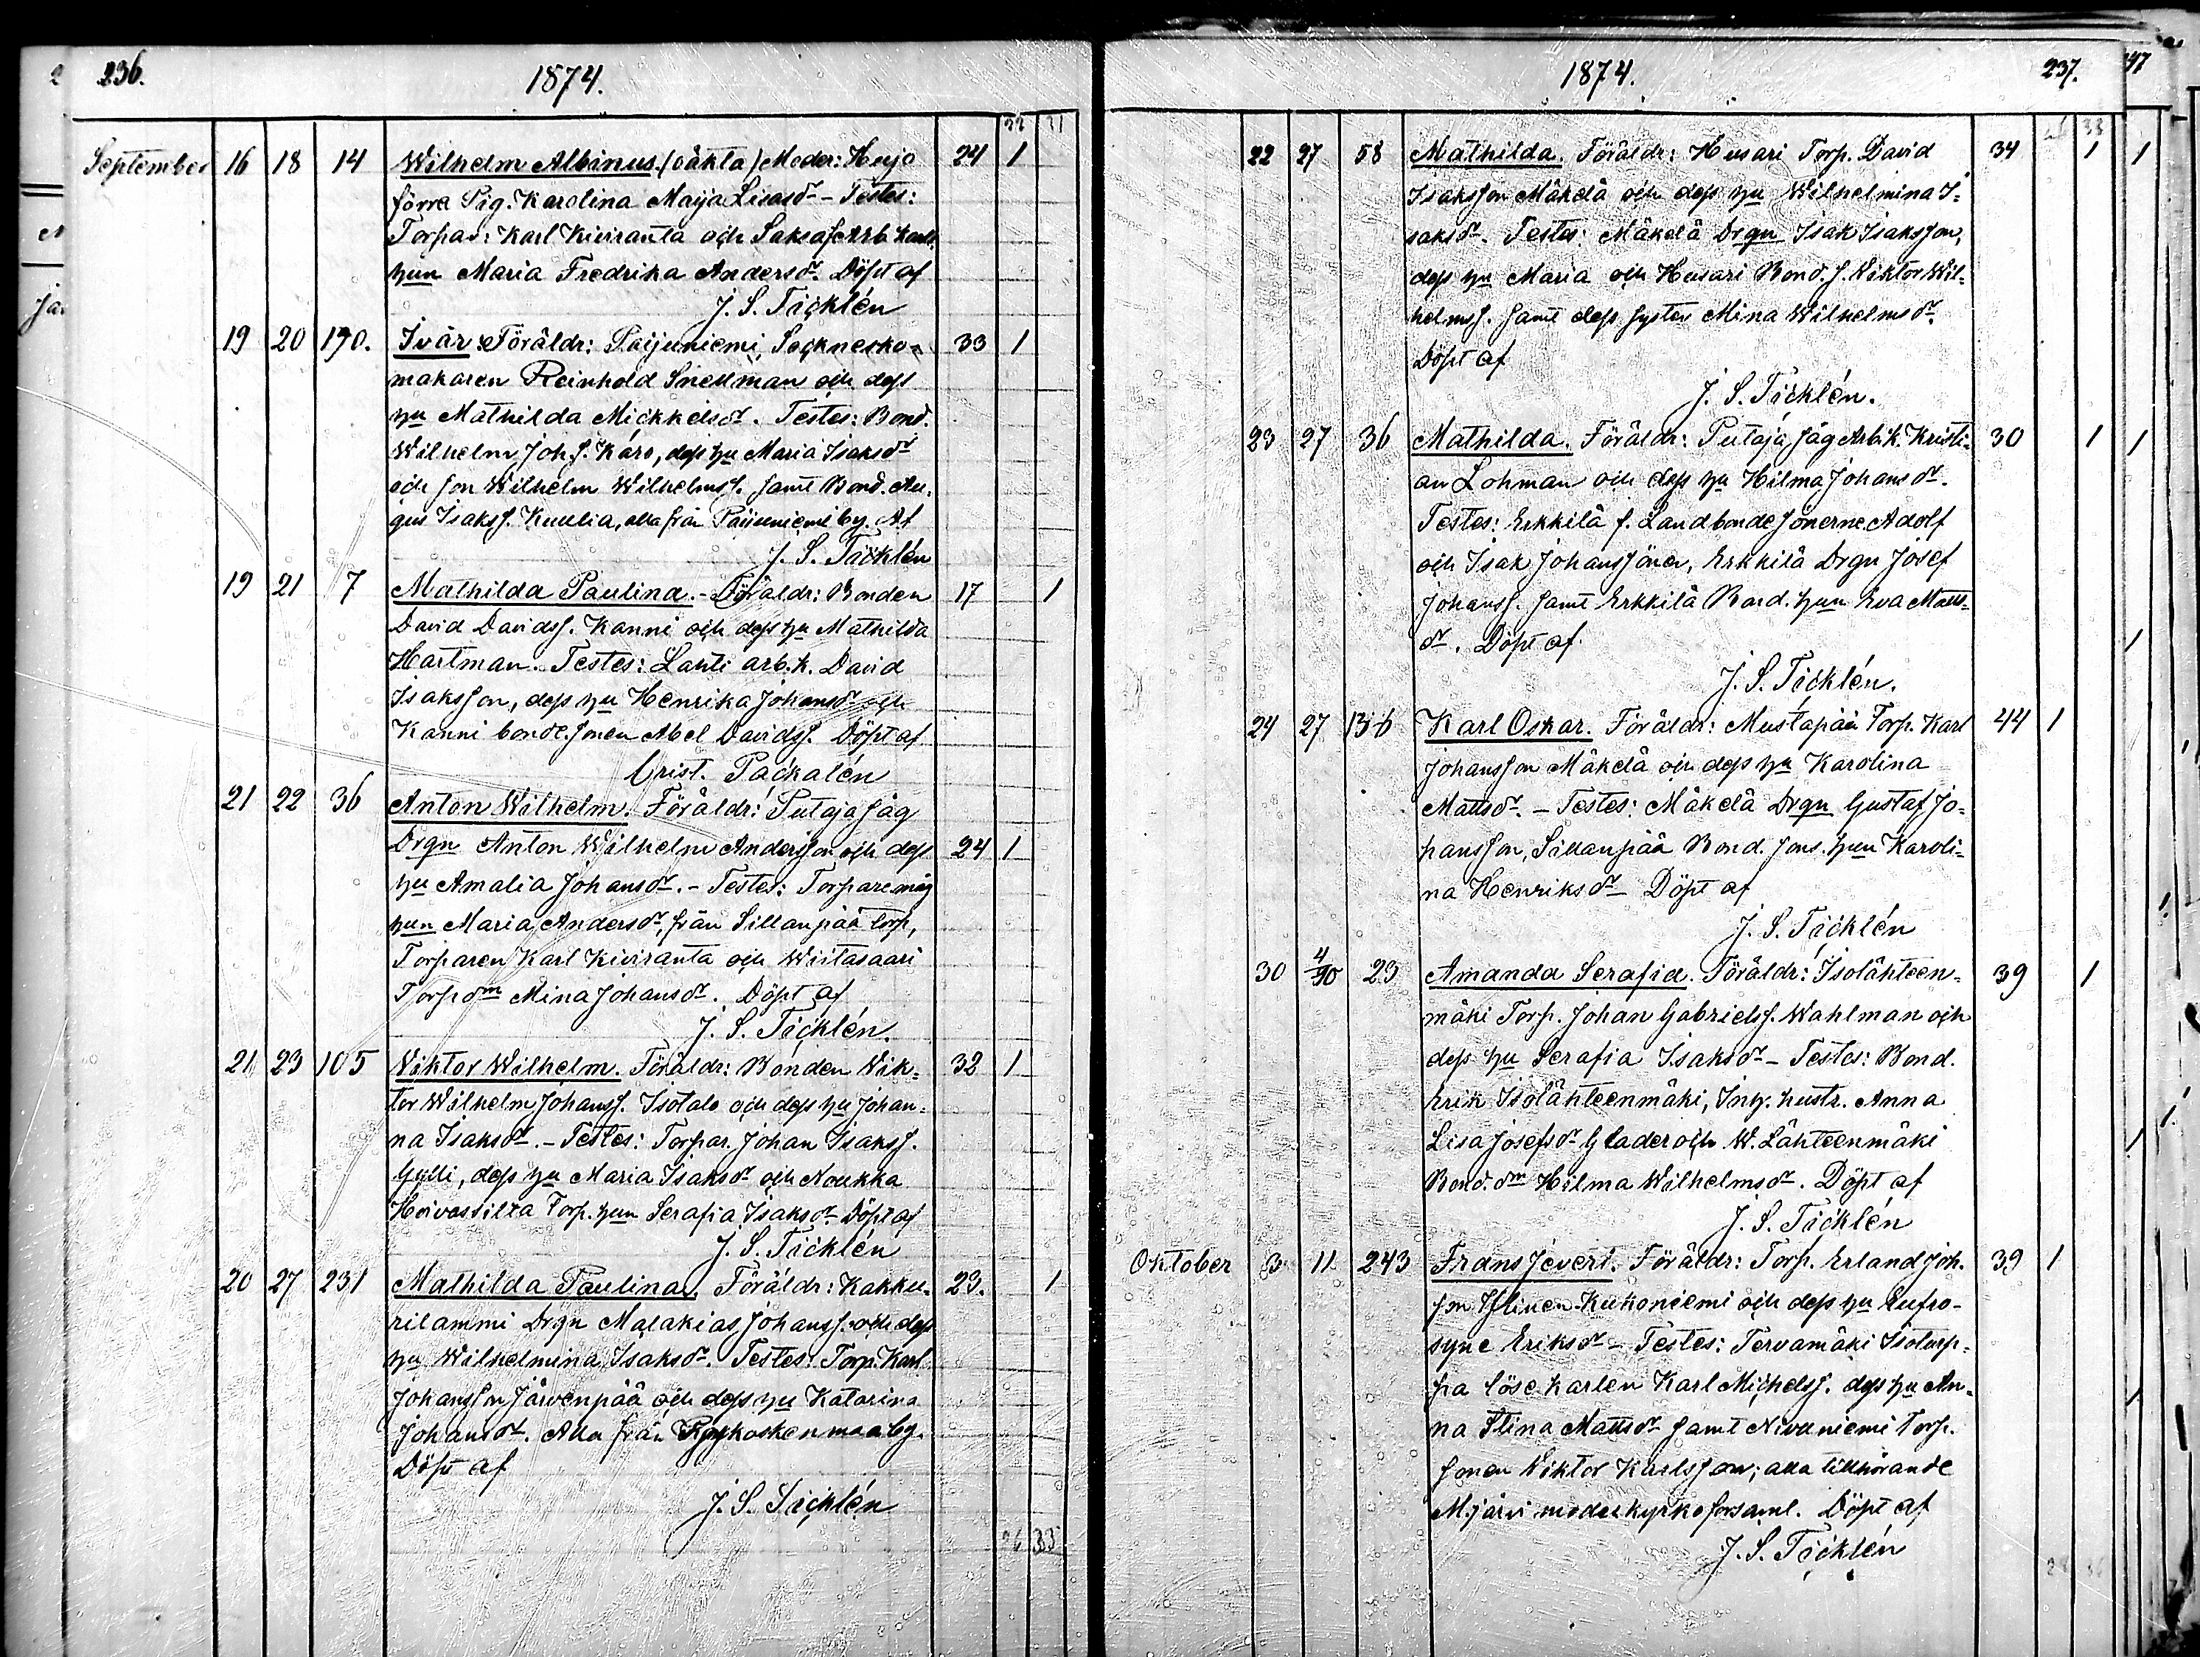 236.
1874.
September 16 18 14 Wilhelm Albinus. (oäkta) Moder: Harjo 24 1
förra Pig. Karolina Maija Lisasdr - Testes:
Torpar: Karl Kiviranta och Arb. karls
hun Maria Fredrika Andersdr. Döpt af
J. S. Täcklén
19 20 190. Ivar. Föräldr: Paijuniemi, Socknesko- 33 1
makaren Reinhold Snellman och dess
hu Mathilda Mickkelsdr. Testes: Bond.
Wilhelm Joh. s. Käro, dess hu Maria Isaksdr
och son Wilhelm Wilhelmss. samt Bond. Au-
gus Isakss. Kuulia, alla från Paijuniemi by. Af
J. S. Täcklén
19 21 7 Mathilda Paulina. - Föräldr: Bonden 17 1
David Davidss. Kanni och dess hu Mathilda
Hartman. Testes: Lauti arb. k. David
Isaksson, dess hu Henrika Johansdr och
Kanni bondesonen Abel Davidss. Döpt af
Crist. Päckalén
21 22 36 Anton Wilhelm. Föräldr: Putaja såg
Drgn Anton Wilhelm Andersson och dess 24 1
hu Amalia Johansdr. - Testes: Torparemåg
hun Maria Andersdr, från Sillanpää torp,
Torparen Karl Kiviranta och Wiitasaari
Torp dm Mina Johansdr. Döpt af
J. S. Täcklén.
21 23 105 Viktor Wilhelm. Föräldr: Bonden Vik- 32 1
tor Wilhelm Johanss. Isotalo och dess hu Johan-
na Isaksdr. - Testes: Torpar. Johan Isakss.
Gylli, dess hu Maria Isaksdr och Noukka
Hoivassilta Torp. hun Serafia Isaksdr Döpt af
J. S. Täcklén
20 27 231 Mathilda Paulina. Föräldr: Kakku- 23. 1
rilammi Drgn Malakias Johanss. och dess
hu Wilhelmina Isaksdr. Testes: Torp. Karl
Johansson Järvenpää och dess hu Katarina
Johansdr. Alla från Pyhoskenmaa by.
Döpt af
J. S. Täcklén
26 33
1874.
237.
22 27 58 Mathilda. Föräldr: Husari Torp. David 34 1
Isaksson Mäkelä och dess hu Wilhelmina I-
saksdr. Testes: Mäkelä Drgn Isak Isaksson,
dess hu Maria och Husari Bond. s. Viktor Wil-
helmss. samt dess syster Mina Wilhelmsdr.
Döpt af
J. S. Täcklén.
23 27 36 Mathilda. Föräldr: Putaja såg Arb. k. Kristi- 30 1
an Lohman och dess hu Hilma Johansdr.
Testes: Erkkilä f. Landbondesönerne Adolf
och Isak Johanssöner, Erkkilä Drgn Josef
Johanss. samt Erkkilä Bond. hun Eva Matts-
dr. Döpt af
J. S. Täcklén.
24 27 136 Karl Oskar. Föräldr: Mustapää Torp. Karl 44 1
Johansson Mäkelä och dess hu Karolina
Mattsdr. - Testes: Mäkelä Drgn Gustaf Jo-
hansson, Sillanpää Bond. sons. hun Karoli-
na Henriksdr - Döpt af
J. S. Täcklén
30 4/10 23 Amanda Serafia. Föräldr: Isolähteen- 39 1
mäki Torp. Johan Gabrielss. Wahlman och
dess hu Serafia Isaksdr - Testes: Bond.
Erik Isolähteenmäki, Inh. hustr. Anna
Lisa Josefsdr Glader och W. Lähteenmäki
Bond. dm Hilma Wilhelmsdr. Döpt af
J. S. Täcklén
Oktober 3 11 243 Frans Jevert. Föräldr: Torp. Erland Joh. 39 1
son Kukoniemi och dess hu Eufro-
syne Eriksdr - Testes: Tervamäki Isotorp-
pa lösekarlen Karl Michelss. dess hu An-
na Stina Mattsdr samt Nivuniemi Torp.
sonen Viktor Karlsson; alla tillhörande
M.järvi moderkyrkoförsaml. Döpt af
J. S. Täcklén